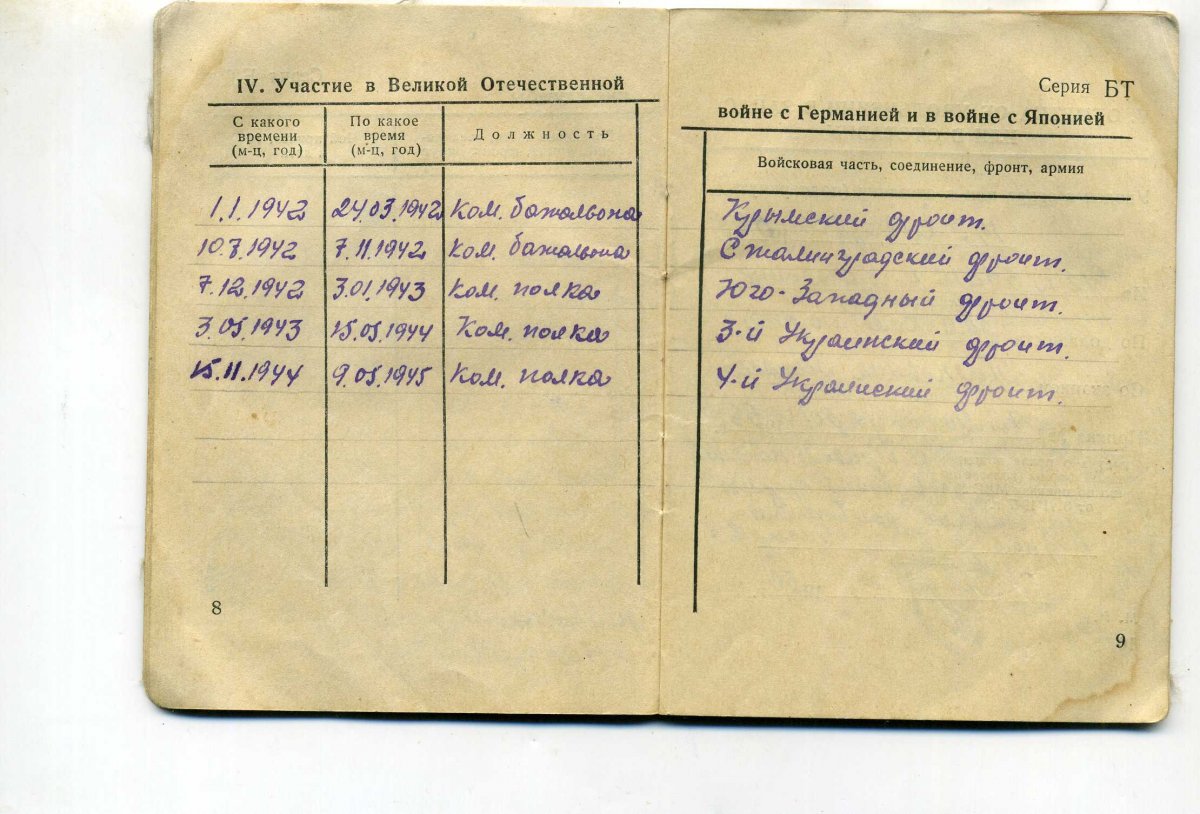 IV. Участие в Великой Отечественной
С какого времени (м-ц, год)
По какое время (м-ц, год)
Должность
1.1.1942 24.03.1942 Ком. батальона
10.7.1942 7.11.1942 Ком. батальона
7.12.1942 3.01.1943 Ком. полка
3.05.1943 15.05.1944 Ком. полка
15.11.1944 9.05.1945 Ком. полка
8
Серия БТ
войне с Германией и в войне с Японией
Войсковая часть, соединение, фронт, армия
Крымский фронт.
Сталинградский фронт.
Юго-Западный фронт.
3-й Украинский фронт.
4-й Украинский фронт.
9